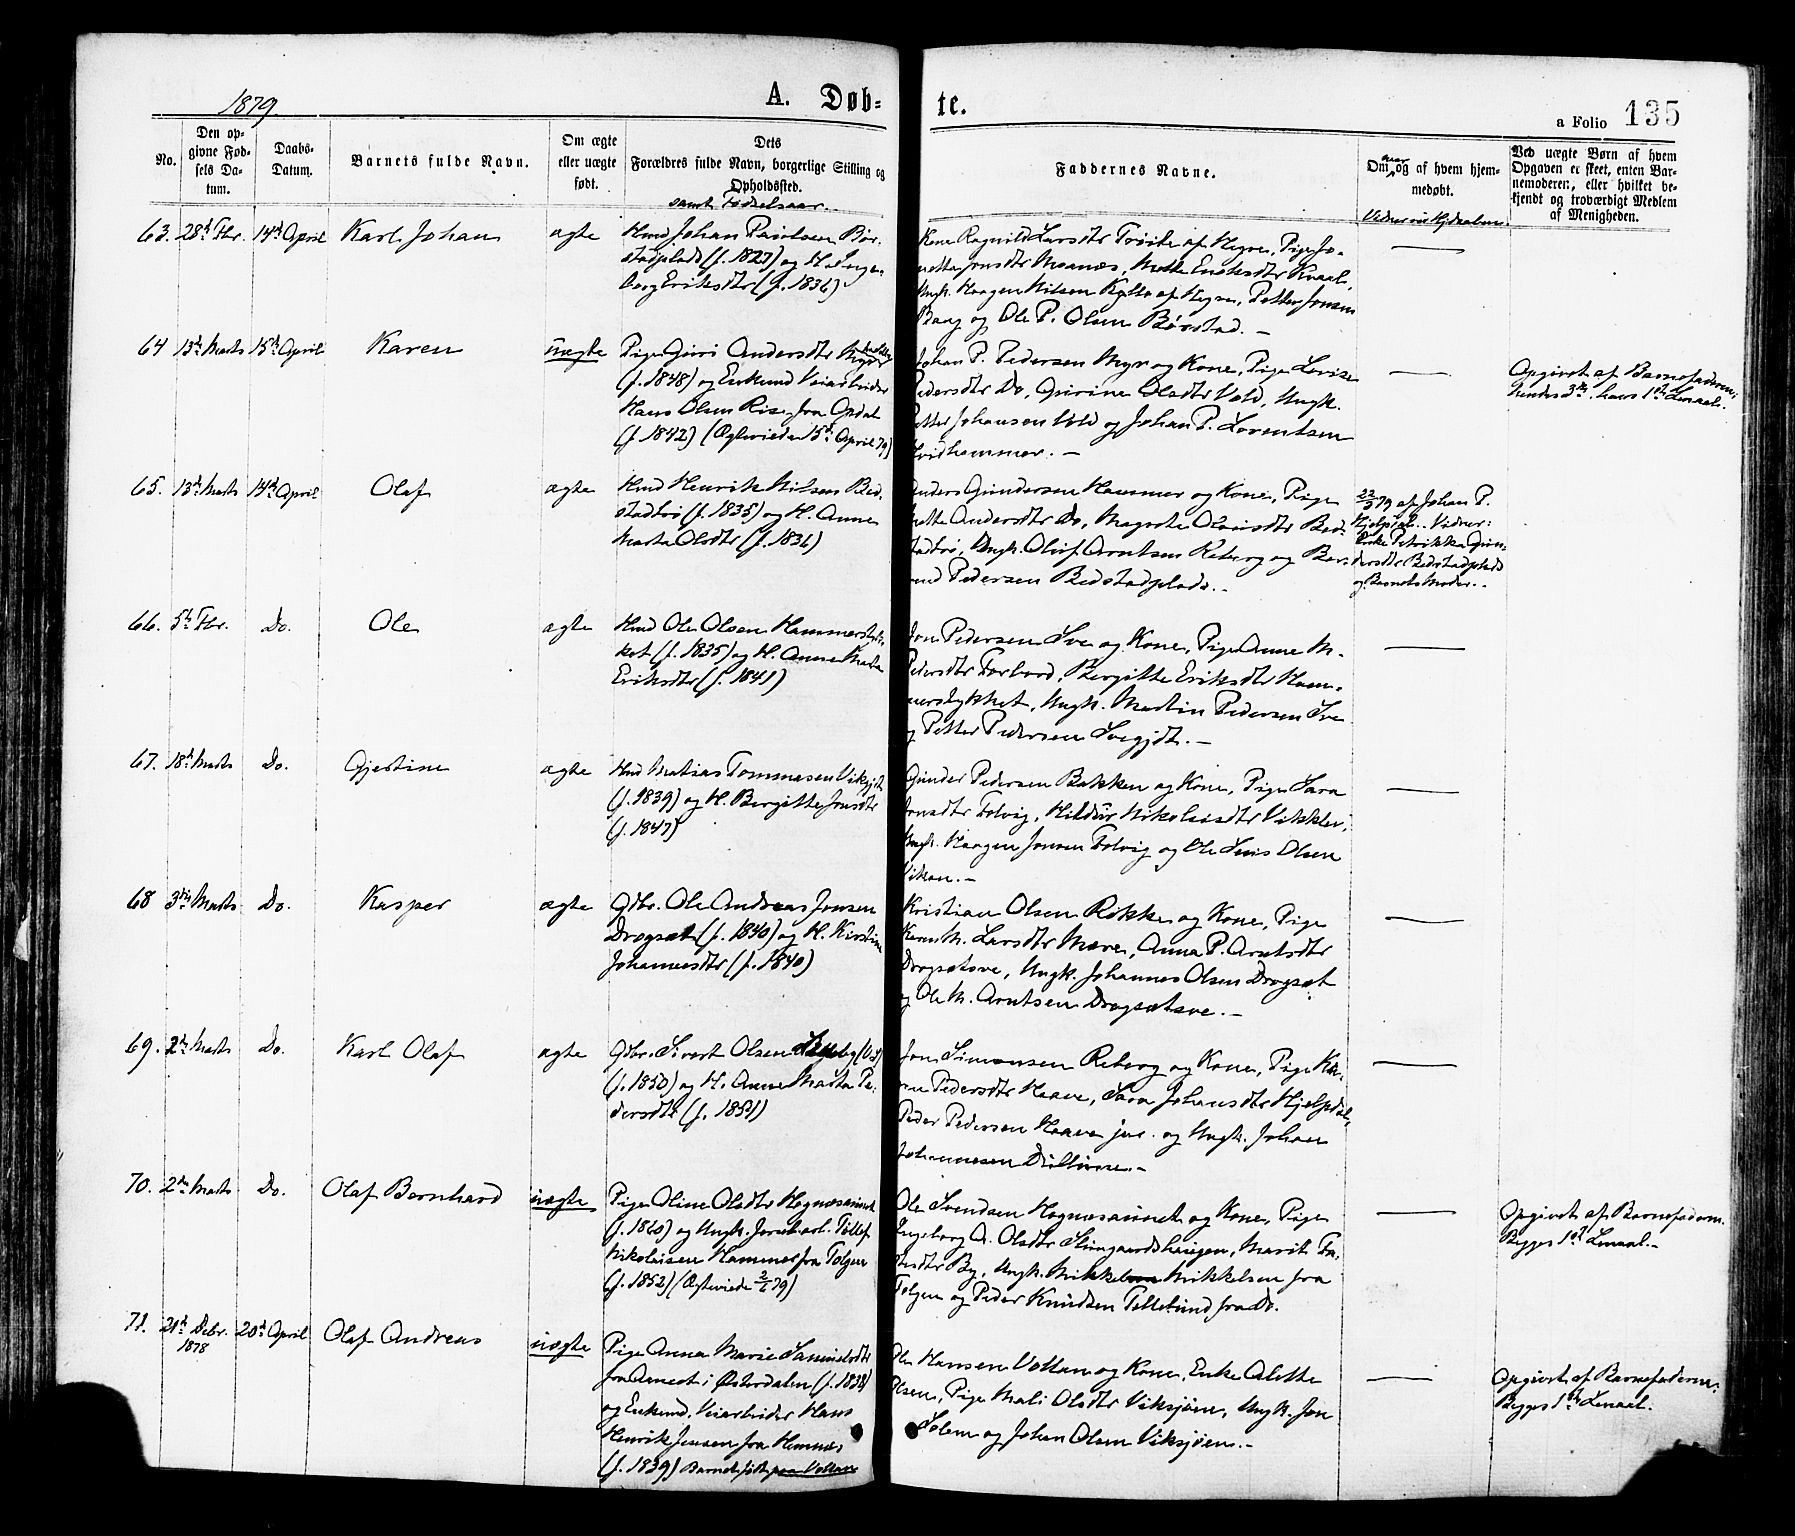 1879.
A. Døb-
te.
a Folio 135
No.
Den op-
givne Fød-
sels Da-
tum.
Daabs-
Datum.
Barnets fulde Navn.
Om ægte
eller uægte
født.
Dets
Forældres fulde Navn, borgerlige Stilling og
Opholdssted.
samt Fødselsaar.
Faddernes Navne.
Om og af hvem hjem-
medøbt.
Ved uægte Børn af hvem
Opgaven er skeet, enten Bar-
nemoderen, eller hvilket be-
kjendt og troværdigt Medlem
af Menigheden.
63. 28d Fbr. 14d April Karl Johan ægte Hmd Johan Paulsen Bør-
stadplads (f. 1827) og H. Inge-
borg Eriksdtr (f. 1836)
Kone Ragnild Larsdtr Trøite af Hegre, Pige Jo-
netta Jonsdtr Moenæs, Mette Enoksdtr Kvaal,
Ungk. Haagen Nilsen af Hegre, Petter Jonsen
Bang og Ole P. Olsen Børstad. –
64 13d Marts 15d April Karen uægte Pige Guri Andersdtr Myr
(f. 1848) og Enkemd Veiarbeider
Hans Olsen Rise fra Opdal
(f. 1842) (Ægteviede 15d April 79)
Johan P. Pedersen Myr og Kone, Pige Lovise
Pedersdtr Do, Gurine Olsdtr Vold, Ungk.
Petter Johansen Vold og Johan P. Lorentsen
Hvidhammer. –
Opgivet af Barnefaderen;
hendes 3die, hans 1ste Lemaal.
65. 13d Marts 14d April Olaf ægte Hmd Henrik Nilsen Bed-
stadtrø (f. 1835) og H. Anne
Marta Olsdtr (f. 1836)
Anders Gundersen Hammer og Kone, Pige
Mette Andersdtr Do, Magrete Olausdtr Bed-
stadtrø, Ungk. Oluf Arntsen Reberg og Ber-
nd Pedersen Bedstadplads. –
22/3 79 af Johan P.
Hjelpdal. Vidner:
Enke Petrikka Gun-
dersdtr Bedstadplads
og Barnets Moder. –
66. 5d Fbr. Do. Ole ægte Hmd Ole Olsen Hammerstyk-
ket (f. 1835) og H. Anne Marta
Eriksdtr (f. 1841)
Jon Pedersen Sve og Kone, Pige Anne M.
Pedersdtr Forbord, Bergitte Eriksdtr Ham-
merstykket, Ungk. Martin Pedersen Sve
og Petter Pedersen Svegjdt. –
67. 18d Marts Do. Gjertine ægte Hmd Matias Tommasen Vikgjdt
(f. 1839) og H. Bergitte Jonsdtr
(f. 1847)
Gunder Pedersen Bakken og Kone, Pige Sara
Jonsdtr Folvig, Hildur Nikolaisdtr Vikklev,
Ungk. Haagen Jonsen Folvig og Ole Olsen
Vikan. –
68 3die Marts Do. Kasper ægte Gdbr. Ole Andreas Jonsen
Dragsæt (f. 1840) og H. Kirstine
Johannesdtr (f. 1840)
Kristian Olsen Røkke og Kone, Pige
Karen M. Larsdtr Mære, Anna P. Arntsdtr
Dragsætsve, Ungk. Johannes Olsen Dragsæt
og Ole M. Arntsen Dragsætsve. –
69. 2den Marts Do. Karl Olaf ægte Gdbr. Sivert Olsen
(f. 1850) og H. Anne Marta Pe-
dersdtr (f. 1851)
Jon Simonsen Reberg og Kone, Pige Ka-
ren Pedersdtr Haave, Sara Johansdtr Hjelpdal,
Peder Pedersen Haave jun. og Ungk. Johan
Johannesen
70. 2den Marts Do. Olaf Bernhard uægte Pige Oline Olsdtr Hognesaunet
(f. 1860) og Ungk. Jernbarb. Tollef
Nikolaisen Hammer fra Tolgen
(f. 1852) (Ægteviede 79)
Ole Svendsen Hognesaunet og Kone, Pige
Ingeborg A. Olsdtr Steingaardshaugen, Marit
By, Ungk. Mikkel Mikkelsen fra
Tolgen og Peder Knudsen Tellelund fra Do.
Opgivet af Barnefaderen.
Begges 1ste Lemaal. –
71. 21d Debr. 1878 20d April Olaf Andreas uægte Pige Anna Marie Samuelsdtr
fra Aamot i Østerdalen (f. 1838)
og Enkemd. Veiarbeider Hans
Henrik Jensen fra Hemnæs
(f. 1839) Barnet født paa Vollan
Ole Hansen Vollan og Kone, Enke Olette
Olsen, Pige Mali Olsdtr Viksjøen, Ungk. Jon
Solem og Johan Olsen Viksjøen. –
Opgivet af Barnefaderen;
Begges 1ste Lemaal.